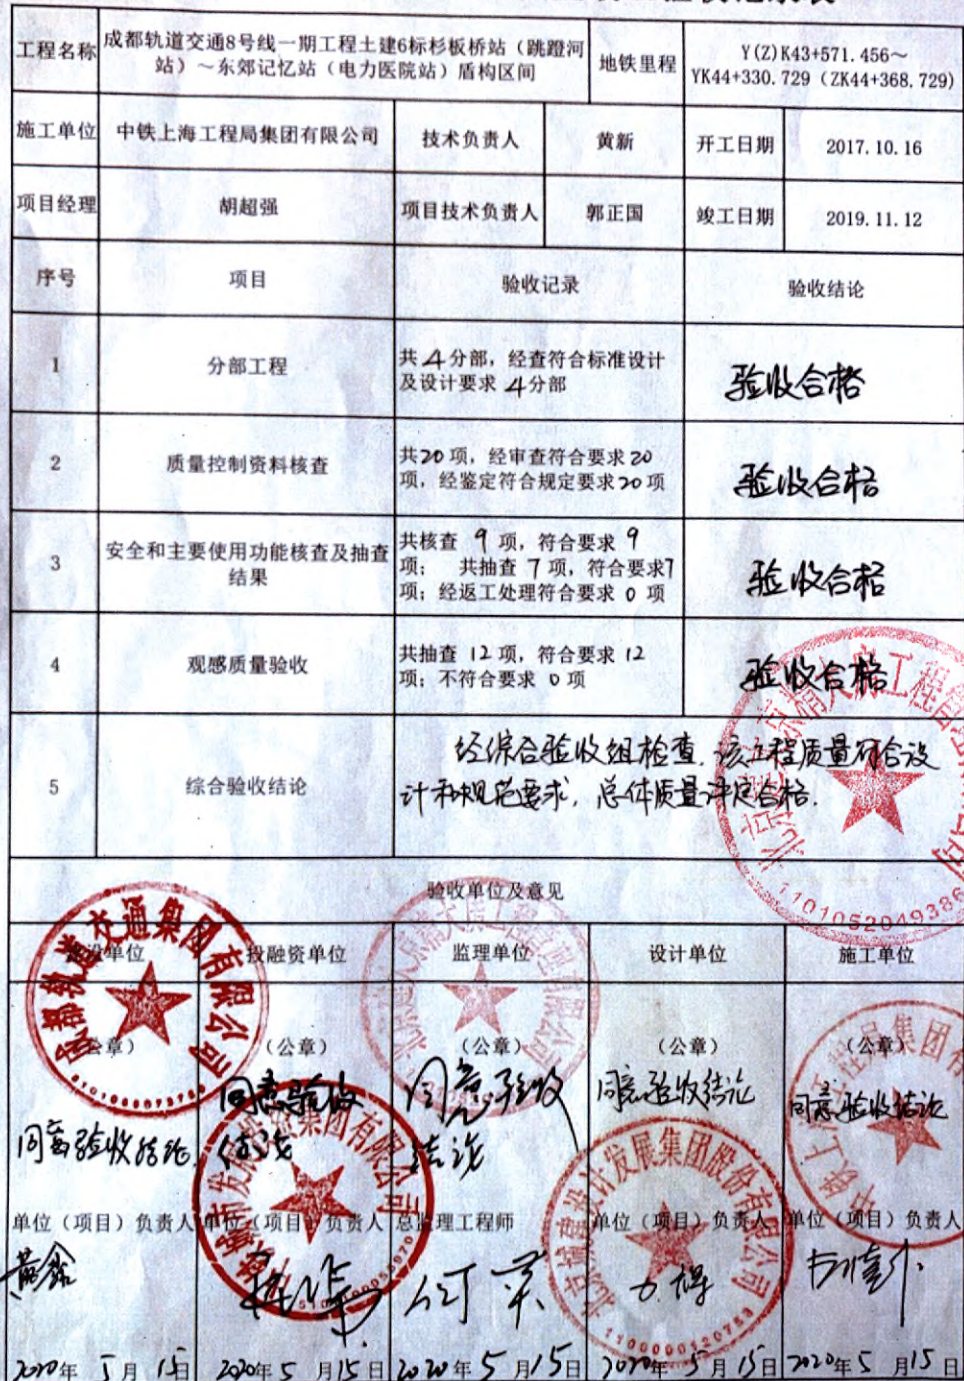 工程名称
成都轨道交通8号线一期工程土建6标杉板桥站（跳蹬河
站）～东郊记忆站（电力医院站）盾构区间
地铁里程
Y(Z)K43+571.456～
YK44+330.729（ZK44+368.729)
施工单位
中铁上海工程局集团有限公司
技术负责人
黄新
开工日期
2017.10.16
项目经理
胡超强
项目技术负责人
郭正国
竣工日期
2019.11.12
序号
项目
验收记录
验收结论
1
分部工程
共4分部，经查符合标准设计
及设计要求 4分部
验收合格
2
质量控制资料核查
共20项，经审查符合要求20
项，经鉴定符合规定要求20项
验收合格
3
安全和主要使用功能核查及抽查
结果
共核查 9 项，符合要求 9
项； 共抽查 7 项，符合要求7
项；经返工处理符合要求 0 项
验收合格
4
观感质量验收
共抽查 12 项，符合要求 12
项；不符合要求 0 项
验收合格
5
综合验收结论
经综合验收组检查，该工程质量符合设
计和规范要求，总体质量评定合格.
验收单位及意见
建设单位
投融资单位
监理单位
设计单位
施工单位
（公章）
（公章）
（公章）
（公章）
（公章）
同意验收结论
同意验收
结论
同意验收
结论
同意验收结论
同意验收结论
单位（项目）负责人
单位（项目）负责人
总监理工程师
单位（项目）负责人
单位（项目）负责人
2020年 5月 15日
2020年 5 月15日
2020年 5 月15日
2020年 5月 15日
2020年 5 月15日
成都轨道交通集团有限公司
北京城建设计发展集团股份有限公司
1100000120753
1101052049386